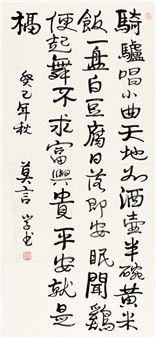 騎驢唱小曲天地如酒壺半碗黃米
飯一盤白豆腐日落即安眠聞鷄
便起舞不求富與貴平安就是
福
癸巳年秋
莫言